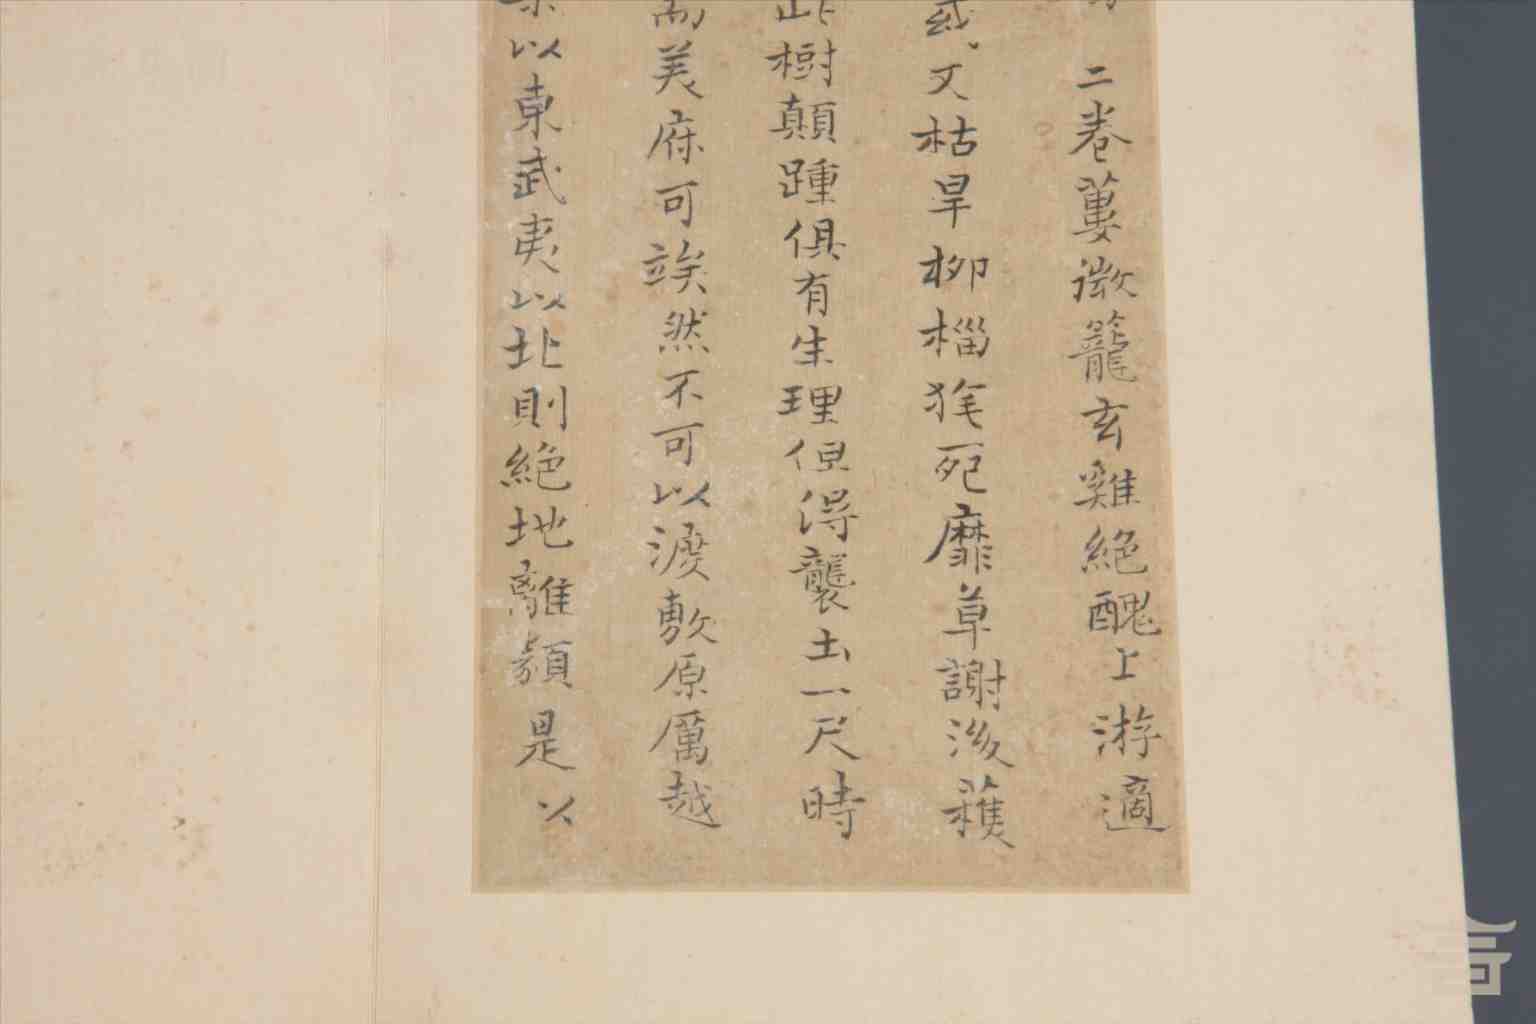 二卷蔞微籠玄雞絕醜上游適
又枯旱柳椔猝死靡草謝後穫
此樹顛踵俱有生理但得襲土一尺時
美府可竢然不可以淚敷原厲越
以東武夷以北則絕地離潁是以